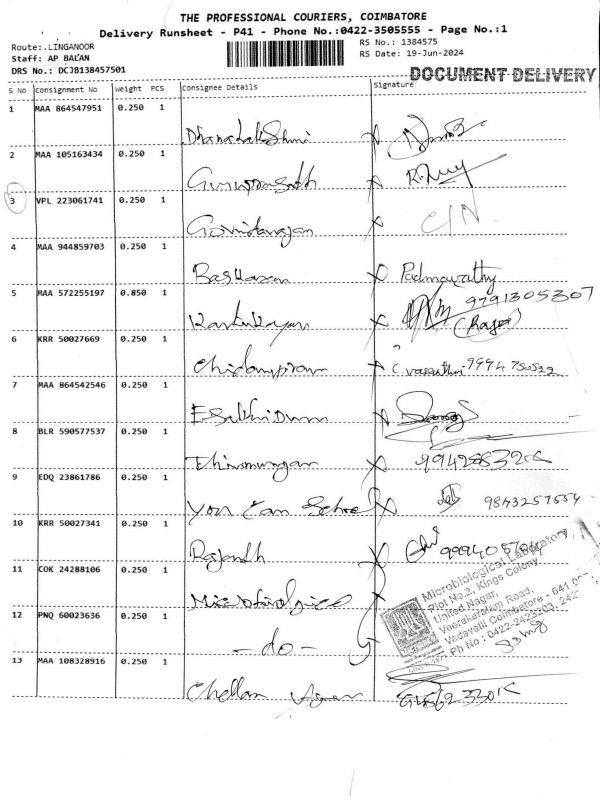 THE PROFESSIONAL COURIERS, COIMBATORE
Delivery Runsheet - P41 - Phone No.:0422-3505555 - Page No.:1
Route:.LINGANOOR
RS No.: 1384575
Staff: AP BALAN
RS Date: 19-Jun-2024
DRS No.: DCJB138457501
DOCUMENT DELIVERY
S No Consignment No Weight PCS Consignee Details Signature
1 MAA 864547951 0.250 1
Dhanalakshmi X
2 MAA 105163434 0.250 1
Guruprasath X
3 VPL 223061741 0.250 1
Govindarajan X
4 MAA 944859703 0.250 1
Baskaran X Padmavathy
5 MAA 572255197 0.850 1
9791305307
Karthikayan X (Raja)
6 KRR 50027669 0.250 1
Chidampram X C. Vasanthi 9994750522
7 MAA 864542546 0.250 1
X
8 BLR 590577537 0.250 1
Thirumurugan X
9 EDQ 23861786 0.250 1
You Can School X 9843257554
10 KRR 50027341 0.250 1
Rajandh X
11 COK 24288106 0.250 1
Microbiological Laboratory
Plot No.2, Kings Colony
United Nagar,
Veerakeralam Road,
Vadavalli Coimbatore - 641 007
12 PNQ 60023636 0.250 1
Ph No : 0422-2423203, 242
- do -
13 MAA 108328916 0.250 1
Chellam